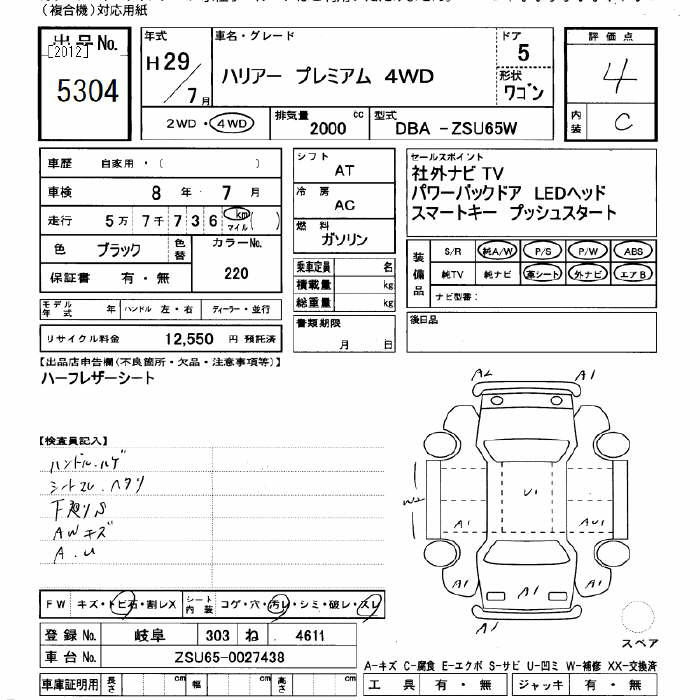 (複合機)対応用紙
出品No.
[2012]
5304
年式
H29/7月
車名・グレード
ハリアー プレミアム 4WD
ドア
5
形状
ワゴン
評価点
4
内装
C
2WD・4WD
排気量
2000 cc
型式
DBA -ZSU65W
車歴 自家用・( )
車検 8年 7月
走行 5万7千736 km マイル( )
色 ブラック 色替
カラーNo.
220
保証書 有・無
モデル年式 年 ハンドル 左・右 ディーラー・並行
リサイクル料金 12,550 円 預託済
シフト
AT
冷房
AC
燃料
ガソリン
乗車定員 名
積載量 kg
総重量 kg
書類期限
月 日
セールスポイント
社外ナビ TV
パワーバックドア LEDヘッド
スマートキー プッシュスタート
装備品
S/R 純A/W P/S P/W ABS
純TV 純ナビ 革シート 外ナビ エアB
ナビ型番:
後日品
【出品店申告欄(不良箇所・欠品・注意事項等)】
ハーフレザーシート
【検査員記入】
ハンドル.ハゲ
シートスレ.ヘタリ
下廻りS
AWキズ
A.U
FW キズ・トビ石・割レX シート内装 コゲ・穴・汚レ・シミ・破レ・スレ
登録No. 岐阜 303 ね 4611
車台No. ZSU65-0027438
車庫証明用 長さ cm 幅 cm 高さ cm
A2 A1
U1
W2
A1 AU1
A1 A1 A1
スペア
A-キズ C-腐食 E-エクボ S-サビ U-凹ミ W-補修 XX-交換済
工具 有・無 ジャッキ 有・無